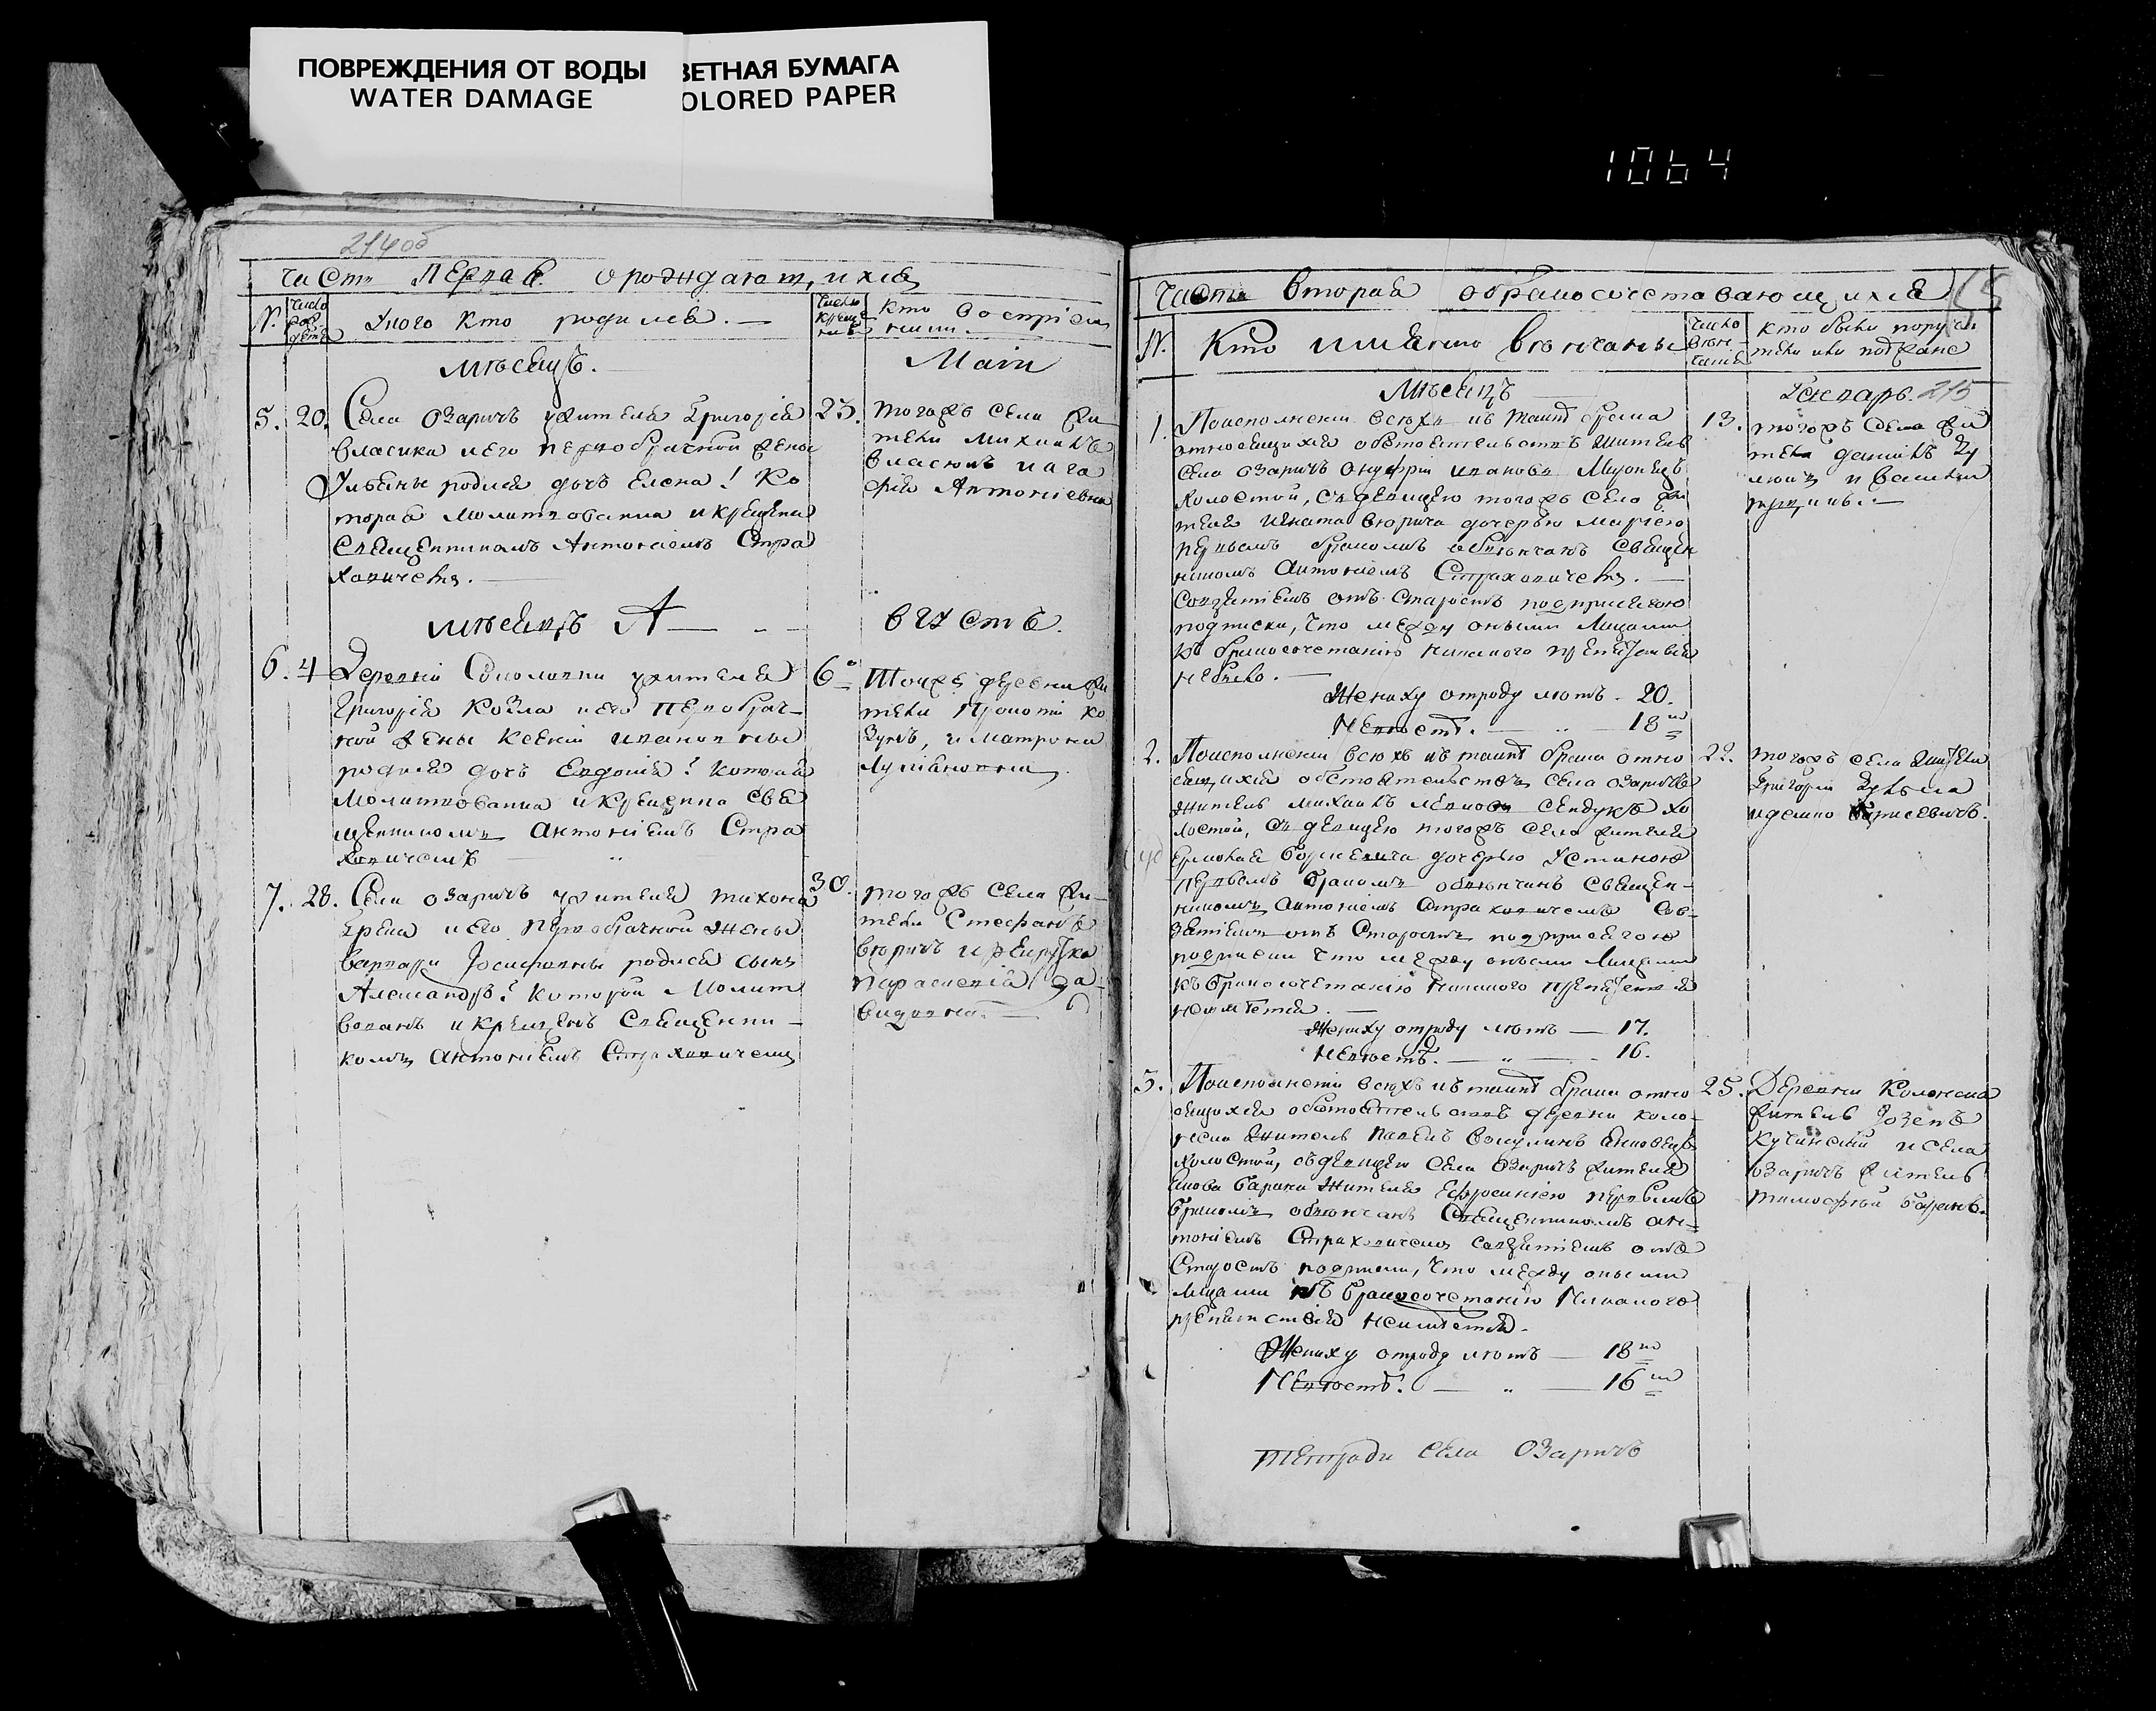 ПОВРЕЖДЕНИЯ ОТ ВОДЫ
WATER DAMAGE
ВЕТНАЯ БУМАГА
OLORED PAPER
1064
214об
Часть Первая о рождающихся
№. Число рождения У кого кто родился. Число крещения Кто восприемники.
мѣсяцъ. Маiи
5. 20. Села Озаричъ жителя Григорія
Власика и его первобрачной жены
Ульяны родися дочь Елена! Ко
торая молитвованна и крещена
Священникомъ Антоніемъ Стра
ховичемъ.
23. тогожъ села жи
тели Михаилъ
Власюкъ и Ага
фія Антоніевна
мѣсяцъ Августъ.
6. 4 Деревни жителя
Григорія Козла и его первобрач-
ной жены Ксеніи Ивановны
родися дочь Евдокія! которая
молитвованна и крещена свя
щенникомъ Антоніемъ Стра
ховичемъ
6 Тоижъ деревни жи
тели Ко
зулъ, и Матрона
7. 28. Села Озаричъ жителя Тихона
и его первобрачной жены
Варвары Іосифовны родися сынъ
Александръ! который молит
вованъ и крещенъ Священни-
комъ Антоніемъ Страховичемъ
30. тогожъ села жи-
тели Стефанъ
Вюричъ и
Параскевія Да-
видовна.
Часть Вторая о бракосочетовающихся
№. Кто именно вѣнчаны Число вѣнчанія Кто были поручи
тели или подъ
мѣсяцъ Генварь. 215
1. Поисполненіи всѣхъ къ тайнѣ брака
относящихся обстоятельствъ житель
села Озаричъ Онуфрій Ивановъ
холостой, съ девицею тогожъ села жи
теля Игната Вюрича дочерью Маріею
первымъ бракомъ обвѣнчанъ Священ
никомъ Антоніемъ Страховичемъ.
Совзятіемъ отъ Старостъ подприсягою
подписки, что между оными лицами
къ бракосочетанію никакого препятствія
небыло.
Жениху отроду лѣтъ - 20.
Невѣстѣ. — " — 18
13. тогожъ села жи
тели Даніилъ
и Василій
2. Поисполненіи всѣхъ къ тайнѣ брака отно
сящихся обстоятельствъ села Озаричъ
житель Михаилъ Сендукъ хо
лостой, съ девицею тогожъ села жителя
Ермолая Борисевича дочерью Устиною
первымъ бракомъ обвѣнчанъ Священ-
никомъ Антоніемъ Страховичемъ Сов-
зятіемъ отъ Старостъ подприсягою
подписки что между оными лицами
къ бракосочетанію никакого препятствія
неимѣется.
Жениху отроду лѣтъ — 17.
Невѣстѣ. — " — 16.
22. тогожъ села жители
Григорій
и Борисевичъ.
3. Поисполненіи всѣхъ къ тайнѣ брака отно
сящихся обстоятельствъ деревни Коло
неска житель Павелъ
холостой, съ девицею села Озаричъ жителя
Якова Барана Ефросиніею первымъ
бракомъ обвѣнчанъ Священникомъ Ан-
тоніемъ Страховичемъ совзятіемъ отъ
Старостъ подписки, что между оными
лицами къ бракосочетанію никакого
препятствія неимѣется.
Жениху отроду лѣтъ — 18
Невѣстѣ. — " — 16
25. Деревни
житель
Кучинскій и села
Озаричъ житель
Тимофей Баранъ.
Тетради села Озаричъ